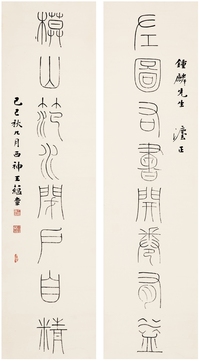 左圖右書開卷有益
鍾麟先生 雅正
模山範水閉戶自精
己巳秋九月西神王蘊章